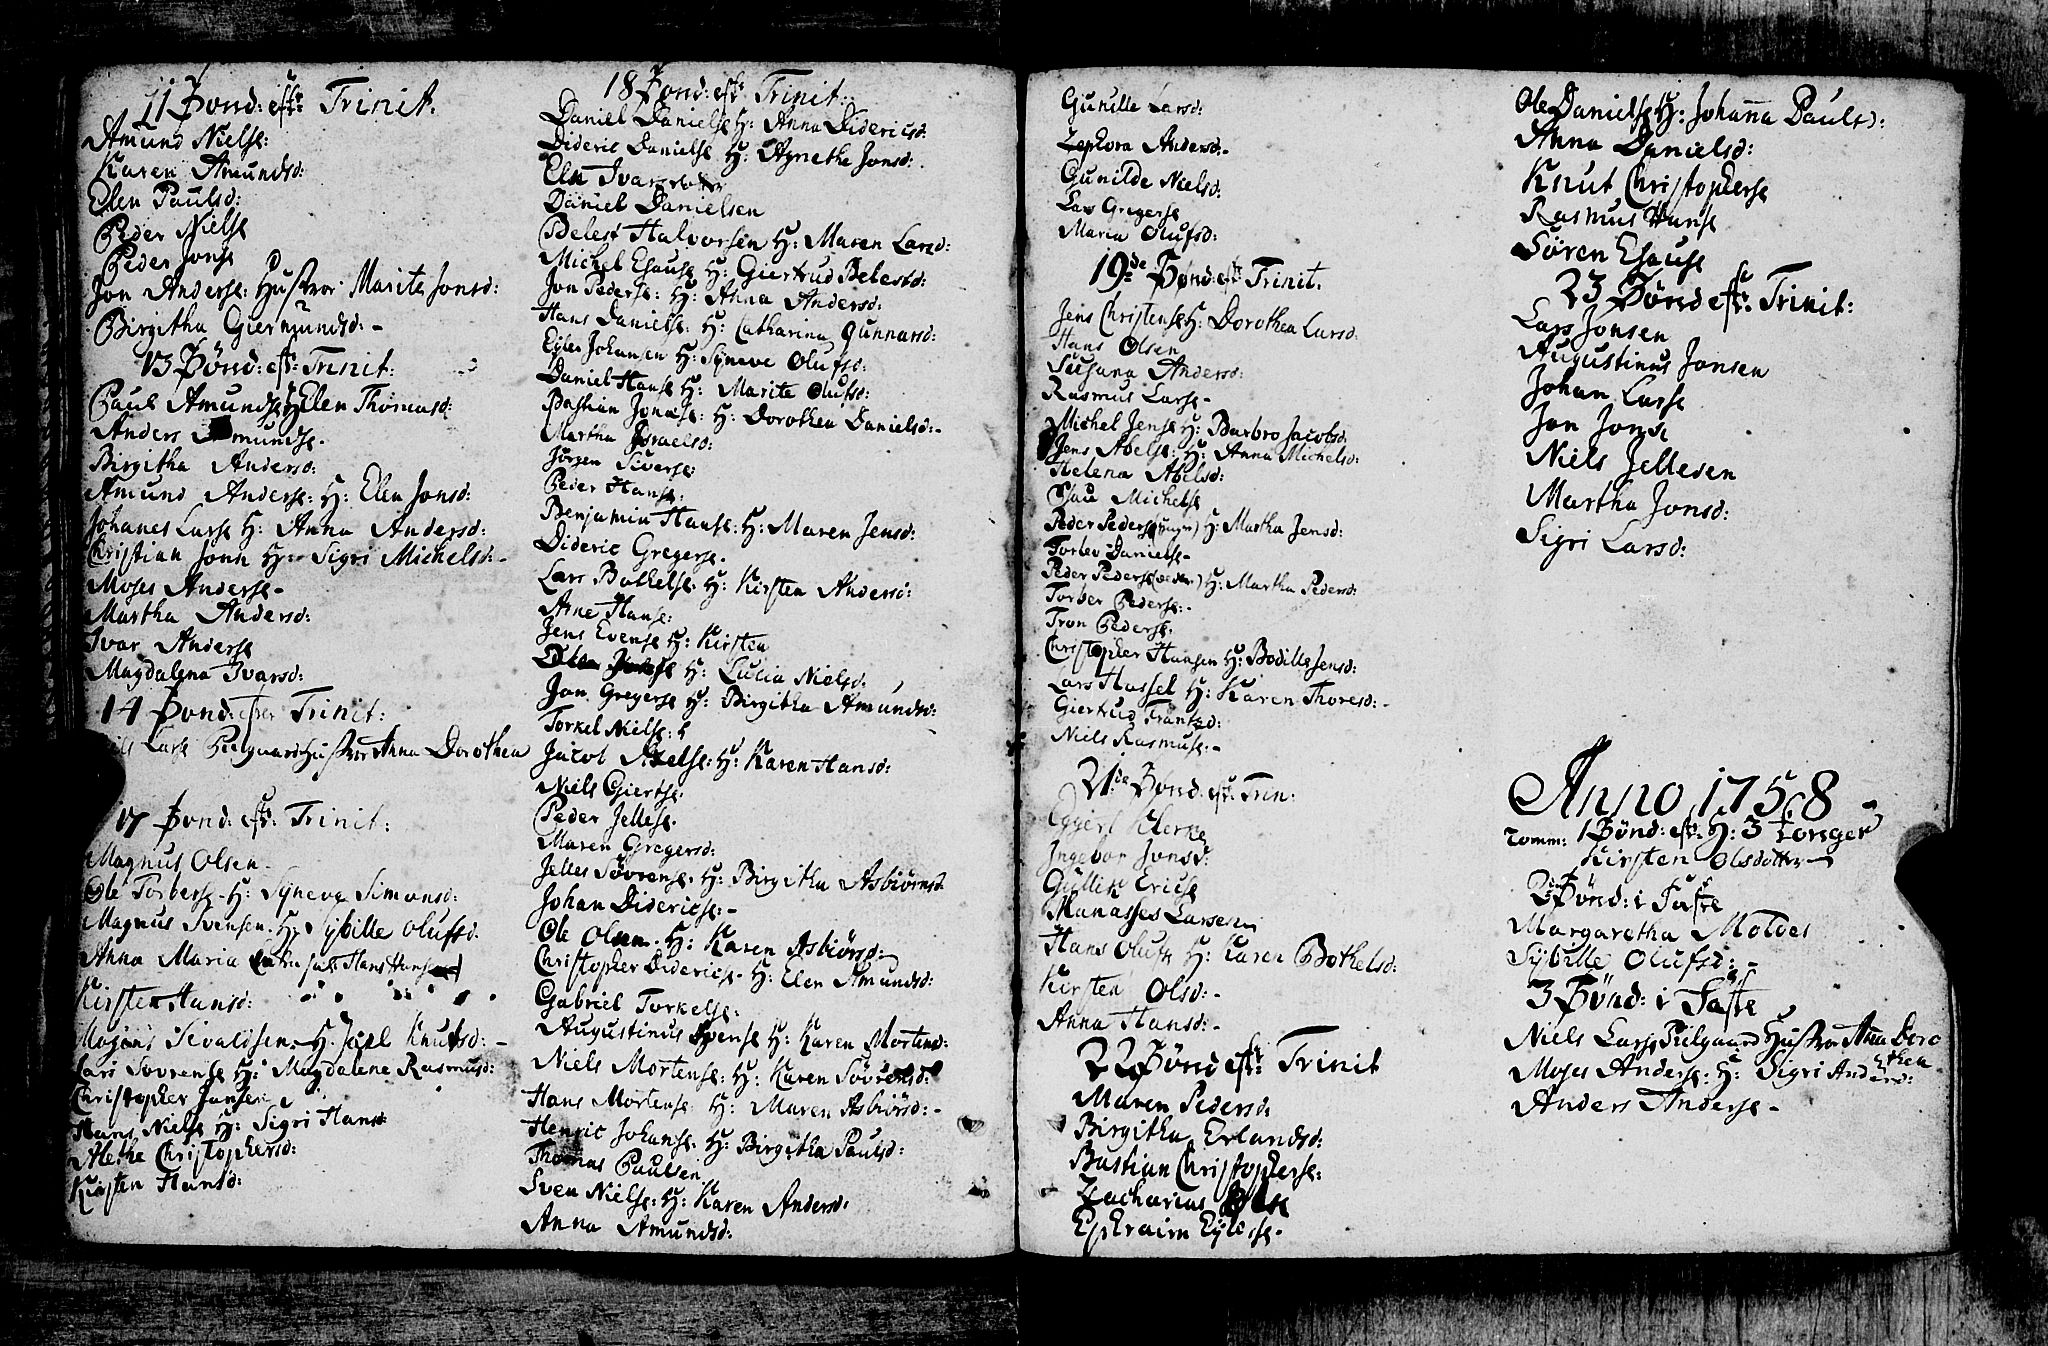 11 Sønd: eft: Trinit:
Amund Nielse:
Karen Amundsd:
Elen Paulsd:
Peder Nielse
Peder Jonse
Jon Anderse: Hustroe Marite Jonsd:
Birgitha Giermundsd: -
13 Sønd: eft: Trinit:
Paul Amundse H: Elen Thomasd:
Anders Amundse.
Birgitha Andersd:
Amund Anderse: H: Elen Jonsd:
Johanes Larse H: Anna Andersd:
Christian Jonn H: Sigri Michelsd: -
Moses Anderse -
Martha Andersd:
Ivar Anderse
Magdalena Ivarsd:
14 Sønd: efter Trinit:
Larse Pielgaard Hustroe Anna Dorothea
17 Sønd: eft: Trinit:
Magnus Olsen -
Ole Torberse - H: Syneve Simonsd:
Magnus Svensen. H: Sybille Olufsd.
Anna Maria Hans
Kirsten Hansd:
Mogens Sivaldsen H. Knutsd: -
Lars Sövrense H: Magdalene Rasmusd:
Christopher Jansen
Hans Nielse H: Sigri Hansd
Methe Christophersd:
Kirsten Hansd:
18 Sønd: eft: Trinit:
Daniel Danielse H: Anna Didericsd.
Dideric Danielse H: Agnetha Jonsd:
Elen Ivarsdotter
Daniel Danielsen
Belest Halvorsen H: Maren Larsd:
Michel Esause H: Giertrud Belestsd:
Jon Pederse: H: Anna Andersd:
Hans Danielse: H: Catharina Gunnarsd:
Eyler Johansen H: Syneve Olufsd:
Daniel Hanse H: Marite Olufsd:
Bastian Jonase: H: Dorothea Danielsd: -
Martha Israelsd:
Jörgen Siverse:
Peder Hanse:
Benjamin Hanse: H: Maren Jensd:
Dideric Gregerse.
Lars Bothelse: H: Kirsten Andersd:
Arne Hanse:
Jens Evense H: Kirsten
H: Lucia Nielsd:
Jan Gregerse H: Birgitha Amundsd:
Torkel Nielse:
Jacob Axelse: H: Karen Hansd:
Niels Giertse.
Peder Jellese.
Maren Gregersd:
Jelles Sövrense. H: Birgitha Asbiörnsd
Johan Didericse: -
Ole Olsen. H: Karen Asbiörsd:
Christopher Didericse - H: Elen Amundsd:
Gabriel Torkelse:
Augustinus Svense H: Karen Mortensd:
Niels Mortense: H: Karen Sövrensd:
Hans Mortense H: Maren Asbiörsd: -
Henric Johanse. H: Birgitha Paulsd:
Thomas Paulsen
Sven Nielse: H: Karen Andersd:
Anna Amundsd:
Gunille Larsd:
Zephora Andersd. -
Gunilde Nielsd:
Lars Gregerse
Maria Olufsd:
19de Sønd: eft: Trinit.
Jens Christense H: Dorothea Larsd:
Hans Olsen
Susana Andersd:
Rasmus Larse -
Michel Jense H: Barbro Jacobsd.
Jens Abelse: H: Anna Michelsd:
Helena Abelsd:
Esau Michelse
Peder Pederse (yngr) H: Martha Jensd:
Torber Danielse -
Peder Pederse (elder) H: Martha Pedersd:
Torber Pederse: -
Tron Pederse.
Christopher Hansen H: Bodille Jensd:
Lars Hassel H: Karen Thoresd: -
Giertrud Frantzd:
Niels Rasmuse: -
21de Sønd: eft: Trin:
Eggert Klerke
Ingebor Jonsd:
Gullik Ericse
Manasses Larsen
Hans Olufse H: Karen Bothelsd:
Kirsten Olsd: -
Anna Hansd: -
22 Sønd: eft: Trinit
Maren Pedersd:
Birgitha Erlandsd:
Bastian Christopherse:
Zacharias
Ephraim Eylerse -
Ole Danielse H: Johanna Paulsd:
Anna Danielsd:
Knut Christopherse
Rasmus Hanse
Sören Esause
23 Sønd: eft: Trinit:
Lars Jonsen
Augustinus Jonsen
Johan Larse
Jon Jonse
Niels Jellesen
Martha Jonsd:
Sigri Larsd:
Anno 1758
Domm: 1 Sønd: eft: H: 3 Konger
Kirsten Olsdotter
2 Sønd: i Faste
Margaretha Moldes
Sybille Olufsd: -
3 Sønd: i Faste
Niels Larse Pielgaard Hustroe Anna Doro
thea -
Moses Anderse: H: Sigri Andersd:
Anders Anderse -